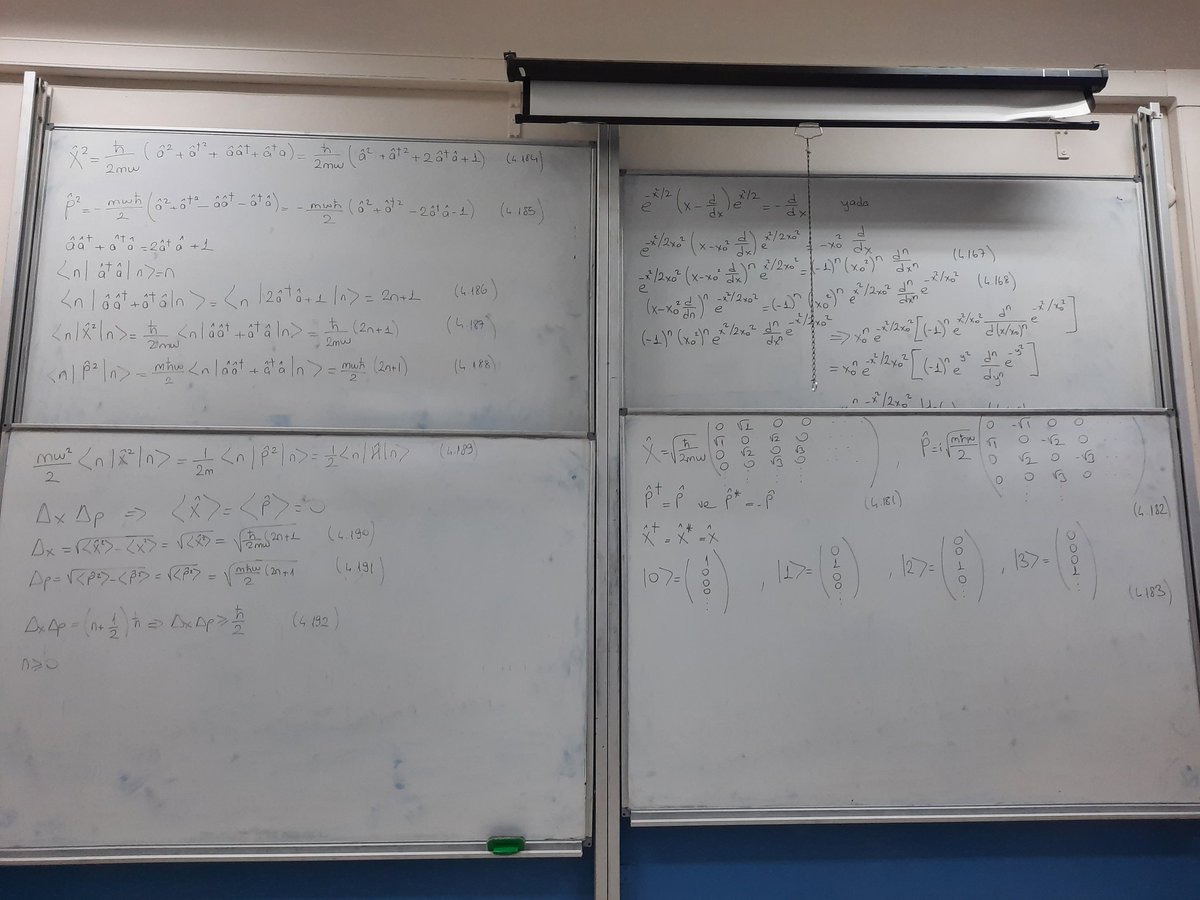 X̂² = ħ/2mω (â² + â†² + ââ† + â†â) = ħ/2mω (â² + â†² + 2â†â + 1) (4.184)
P̂² = - mωħ/2 (â² + â†² - ââ† - â†â) = - mωħ/2 (â² + â†² - 2â†â - 1) (4.185)
ââ† + â†â = 2â†â + 1
⟨n| â†â |n⟩ = n
⟨n| ââ† + â†â |n⟩ = ⟨n| 2â†â + 1 |n⟩ = 2n+1 (4.186)
⟨n| X̂² |n⟩ = ħ/2mω ⟨n| ââ† + â†â |n⟩ = ħ/2mω (2n+1) (4.187)
⟨n| P̂² |n⟩ = mħω/2 ⟨n| ââ† + â†â |n⟩ = mωħ/2 (2n+1) (4.188)
mω²/2 ⟨n| X̂² |n⟩ = 1/2m ⟨n| P̂² |n⟩ = 1/2 ⟨n| Ĥ |n⟩ (4.189)
Δx Δp ⇒ ⟨X̂⟩ = ⟨P̂⟩ = 0
Δx = √⟨X̂²⟩-⟨X⟩² = √⟨X̂²⟩ = √ħ/2mω (2n+1 (4.190)
Δp = √⟨P̂²⟩-⟨P̂⟩² = √⟨P̂²⟩ = √mħω/2 (2n+1 (4.191)
ΔxΔp = (n + 1/2) ħ ⇒ ΔxΔp ≥ ħ/2 (4.192)
n ≥ 0
e^(-x²/2) (x - d/dx) e^(x²/2) = - d/dx yada
e^(-x²/2x₀²) (x - x₀² d/dx) e^(x²/2x₀²) = -x₀² d/dx
e^(-x²/2x₀²) (x - x₀² d/dx)ⁿ e^(x²/2x₀²) = (-1)ⁿ (x₀²)ⁿ dⁿ/dxⁿ (4.167)
(x - x₀² d/dn)ⁿ e^(-x²/2x₀²) = (-1)ⁿ (x₀²)ⁿ e^(x²/2x₀²) dⁿ/dxⁿ e^(-x²/x₀²) (4.168)
(-1)ⁿ (x₀²)ⁿ e^(x²/2x₀²) dⁿ/dxⁿ e^(-x²/x₀²) ⇒ x₀ⁿ e^(-x²/2x₀²) [(-1)ⁿ e^(x²/x₀²) dⁿ/d(x/x₀)ⁿ e^(-x²/x₀²)]
= x₀ⁿ e^(-x²/2x₀²) [(-1)ⁿ e^(y²) dⁿ/dyⁿ e^(-y²)]
X̂ = √ħ/2mω (0 √1 0 0
√1 0 √2 0 ...
0 √2 0 √3
0 0 √3 0 ...)
P̂ = i√mħω/2 (0 -√1 0 0
√1 0 -√2 0
0 √2 0 -√3
0 0 √3 0)
P̂† = P̂ ve P̂* = -P̂ (4.181)
(4.182)
X̂† = X̂* = X̂
|0⟩ = (1 0 0 0 ⋮), |1⟩ = (0 1 0 0 ⋮), |2⟩ = (0 0 1 0 ⋮), |3⟩ = (0 0 0 1 ⋮)
(4.183)